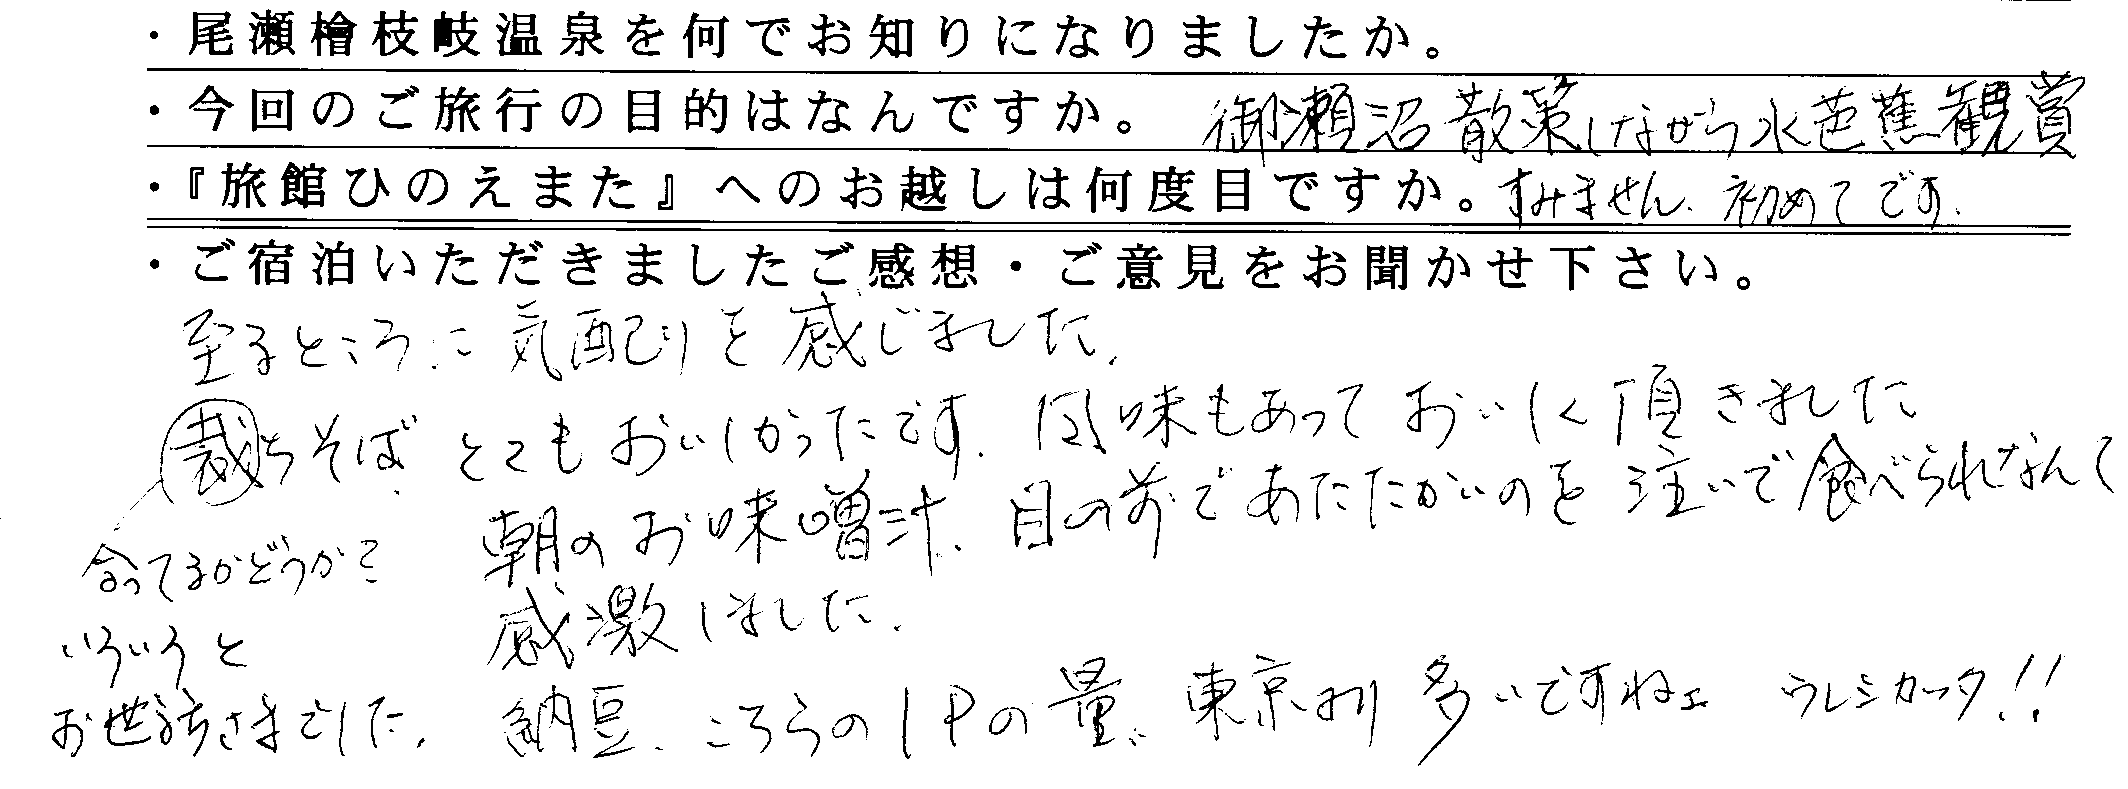 ・尾瀬檜枝岐温泉を何でお知りになりましたか。
・今回のご旅行の目的はなんですか。 御瀬沼散策しながら水芭蕉観賞
・『旅館ひのえまた』へのお越しは何度目ですか。すみません、初めてです。
・ご宿泊いただきましたご感想・ご意見をお聞かせ下さい。
至るところに気配りを感じました。
裁ちそば、とてもおいしかったです。風味もあっておいしく頂きました
朝のお味噌汁、目の前であたたかいのを注いで食べられるなんて
感激しました。
納豆、こちらの1Pの量、東京より多いですねェ ウレシカッタ!!
合ってるかどうか?
いろいろと
お世話さまでした。